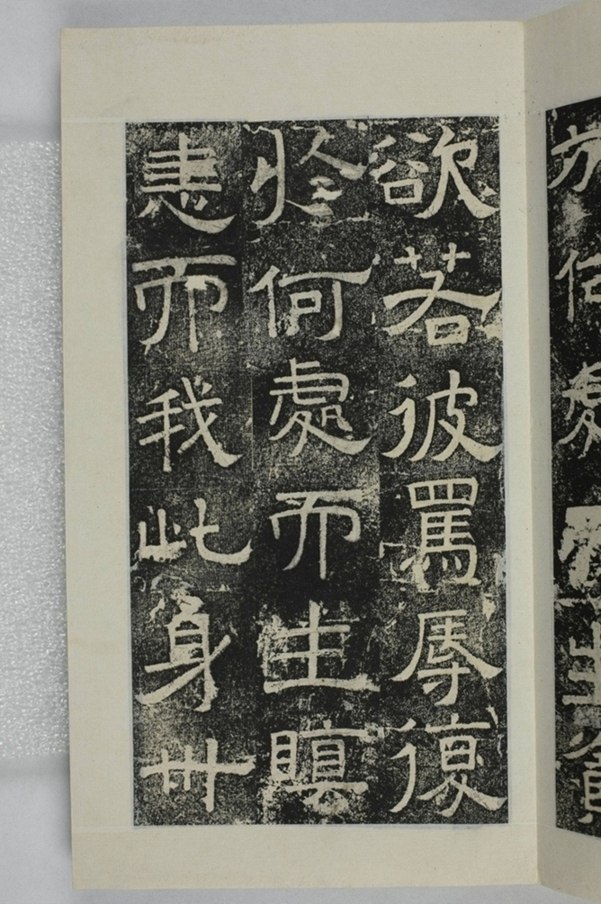 何處而生
欲若彼罵辱復
於何處而生瞋
恚而我此身卅